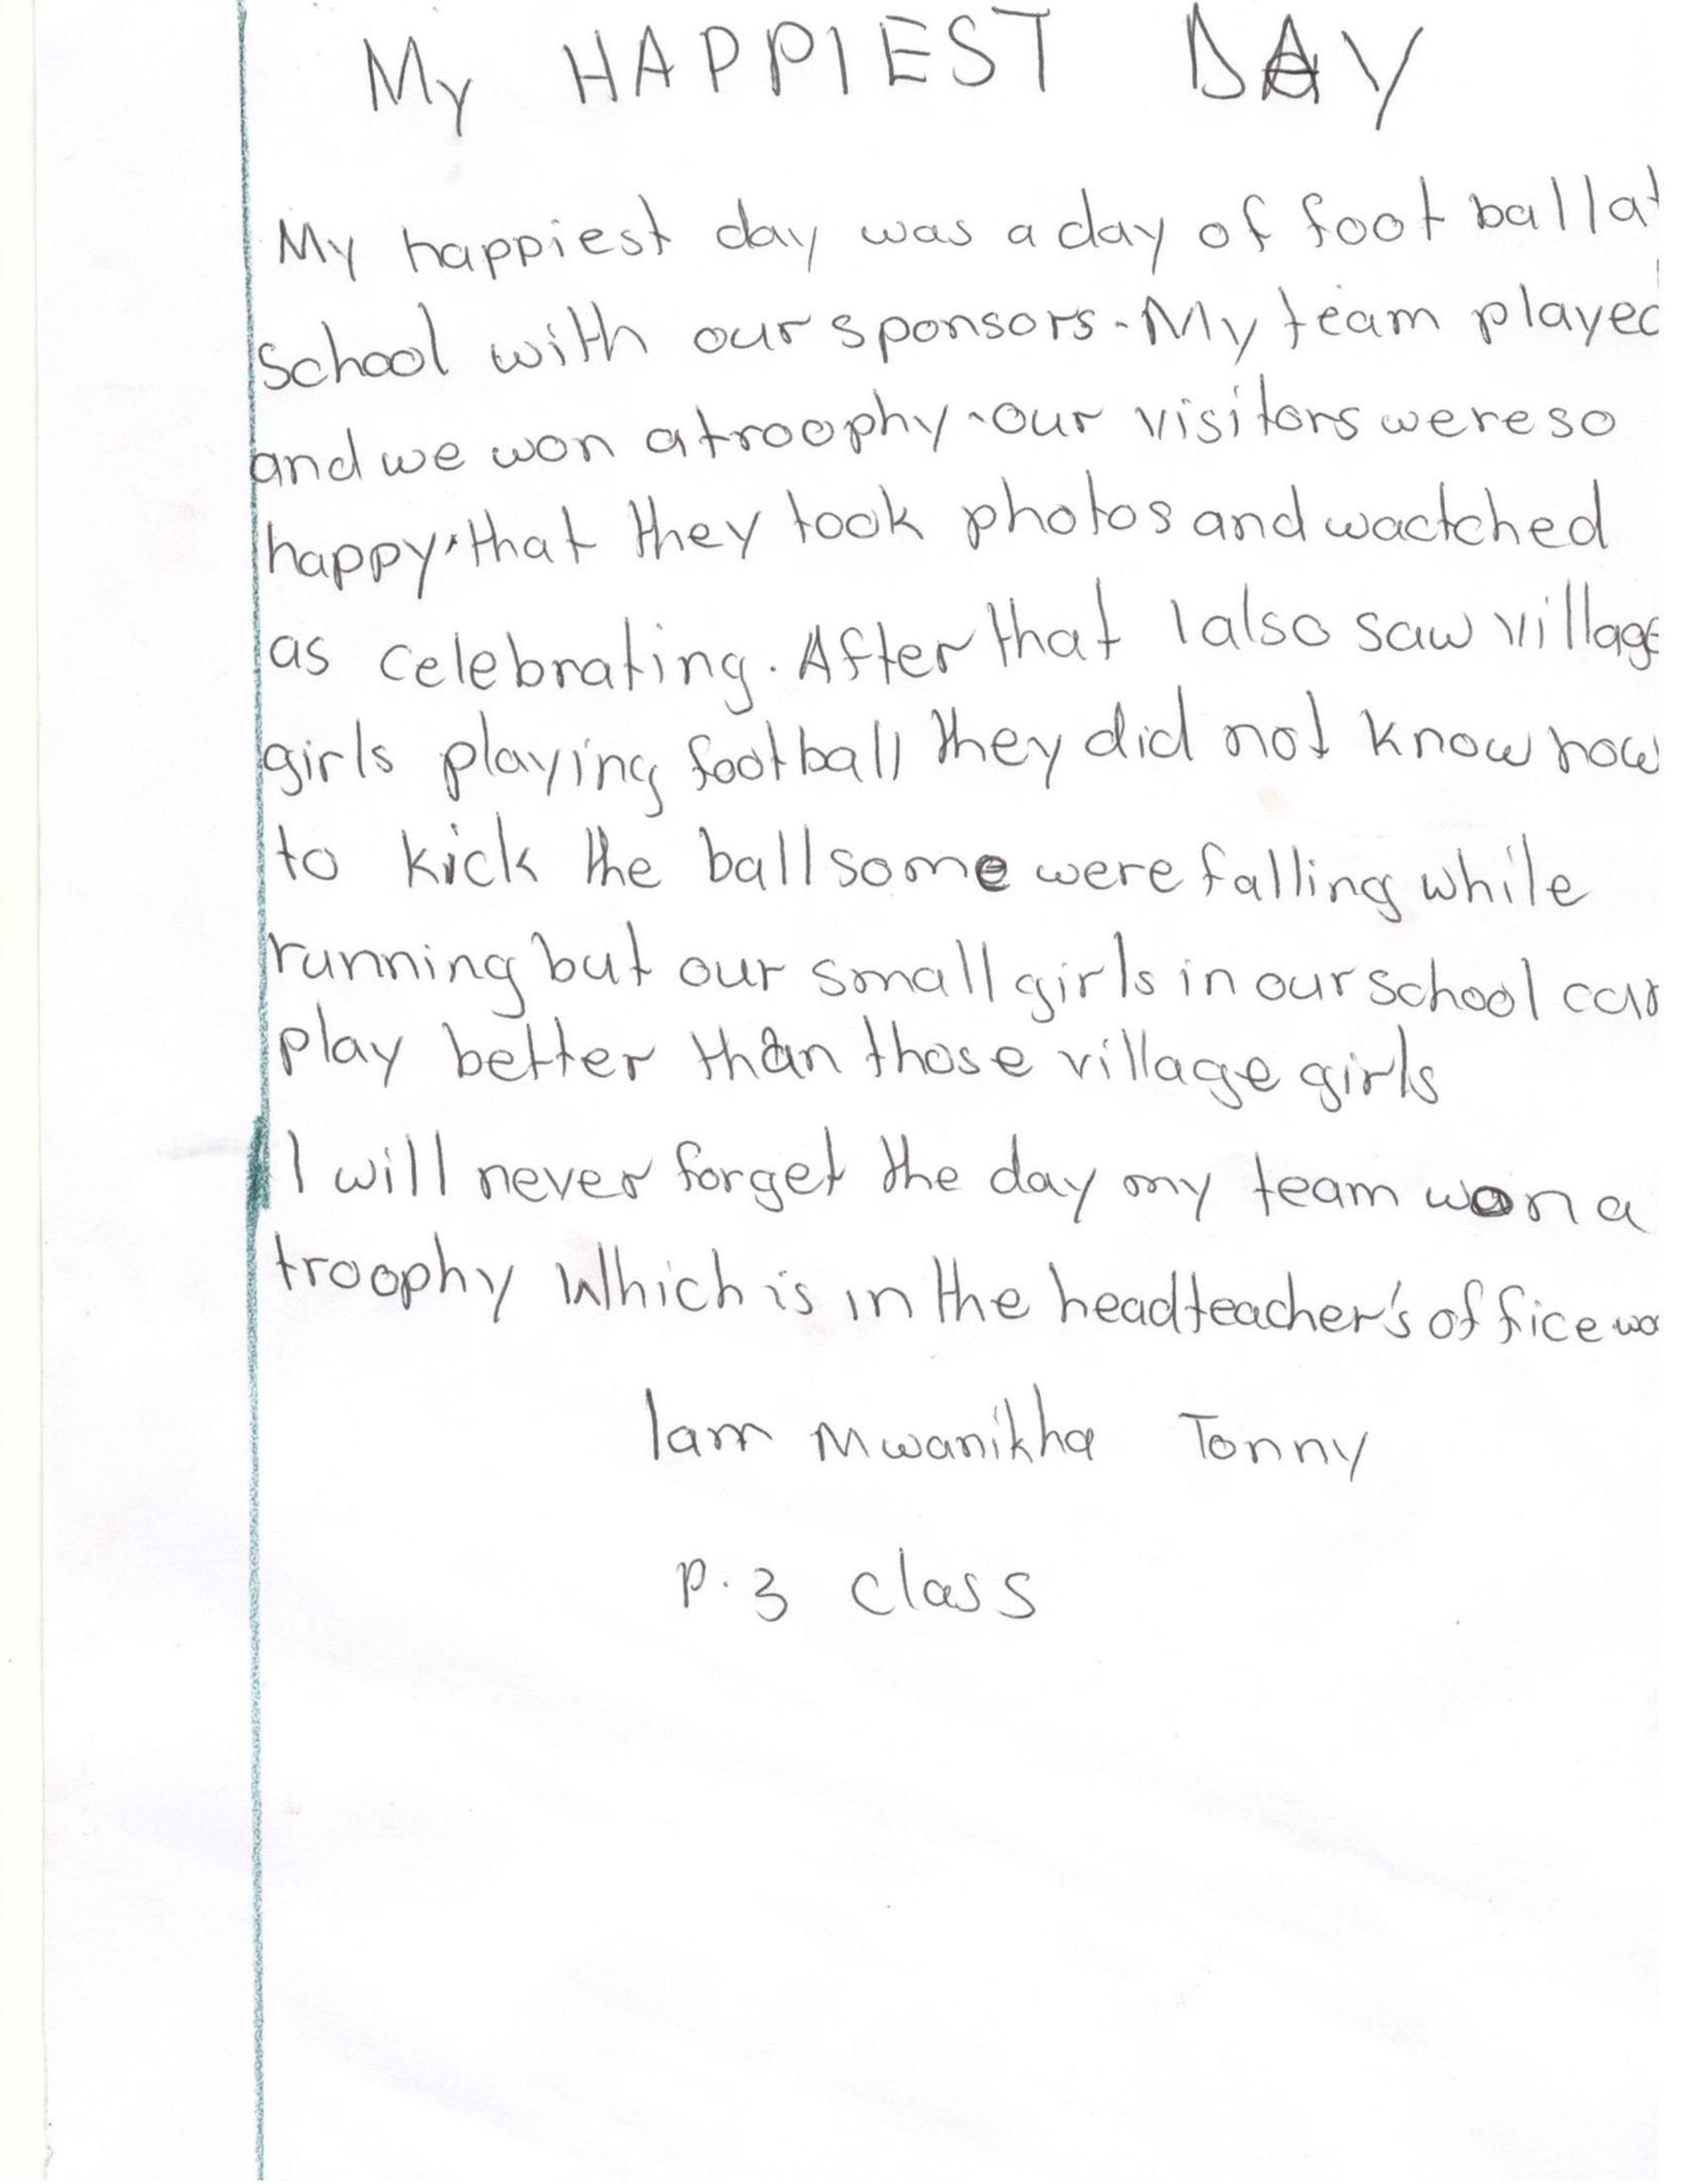 My HAPPIEST DAY
My happiest day was a day of foot ball at
school with our sponsors. My team played
and we won a troophy. our visitors were so
happy that they took photos and wactched
as celebrating. After that I also saw village
girls playing football they did not know how
to kick the ball some were falling while
running but our small girls in our school can
play better than those village girls
I will never forget the day my team won a
troophy Which is in the headteacher's office
Iam Mwanikha Tonny
P.3 class